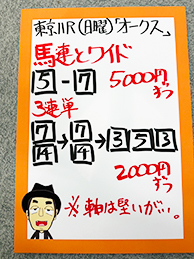 東京11R(日曜)「オークス」
馬連とワイド
5-7 5000円ずつ
3連単
7 4→7 14→3 5 3
2000円ずつ
※軸は堅いが…。